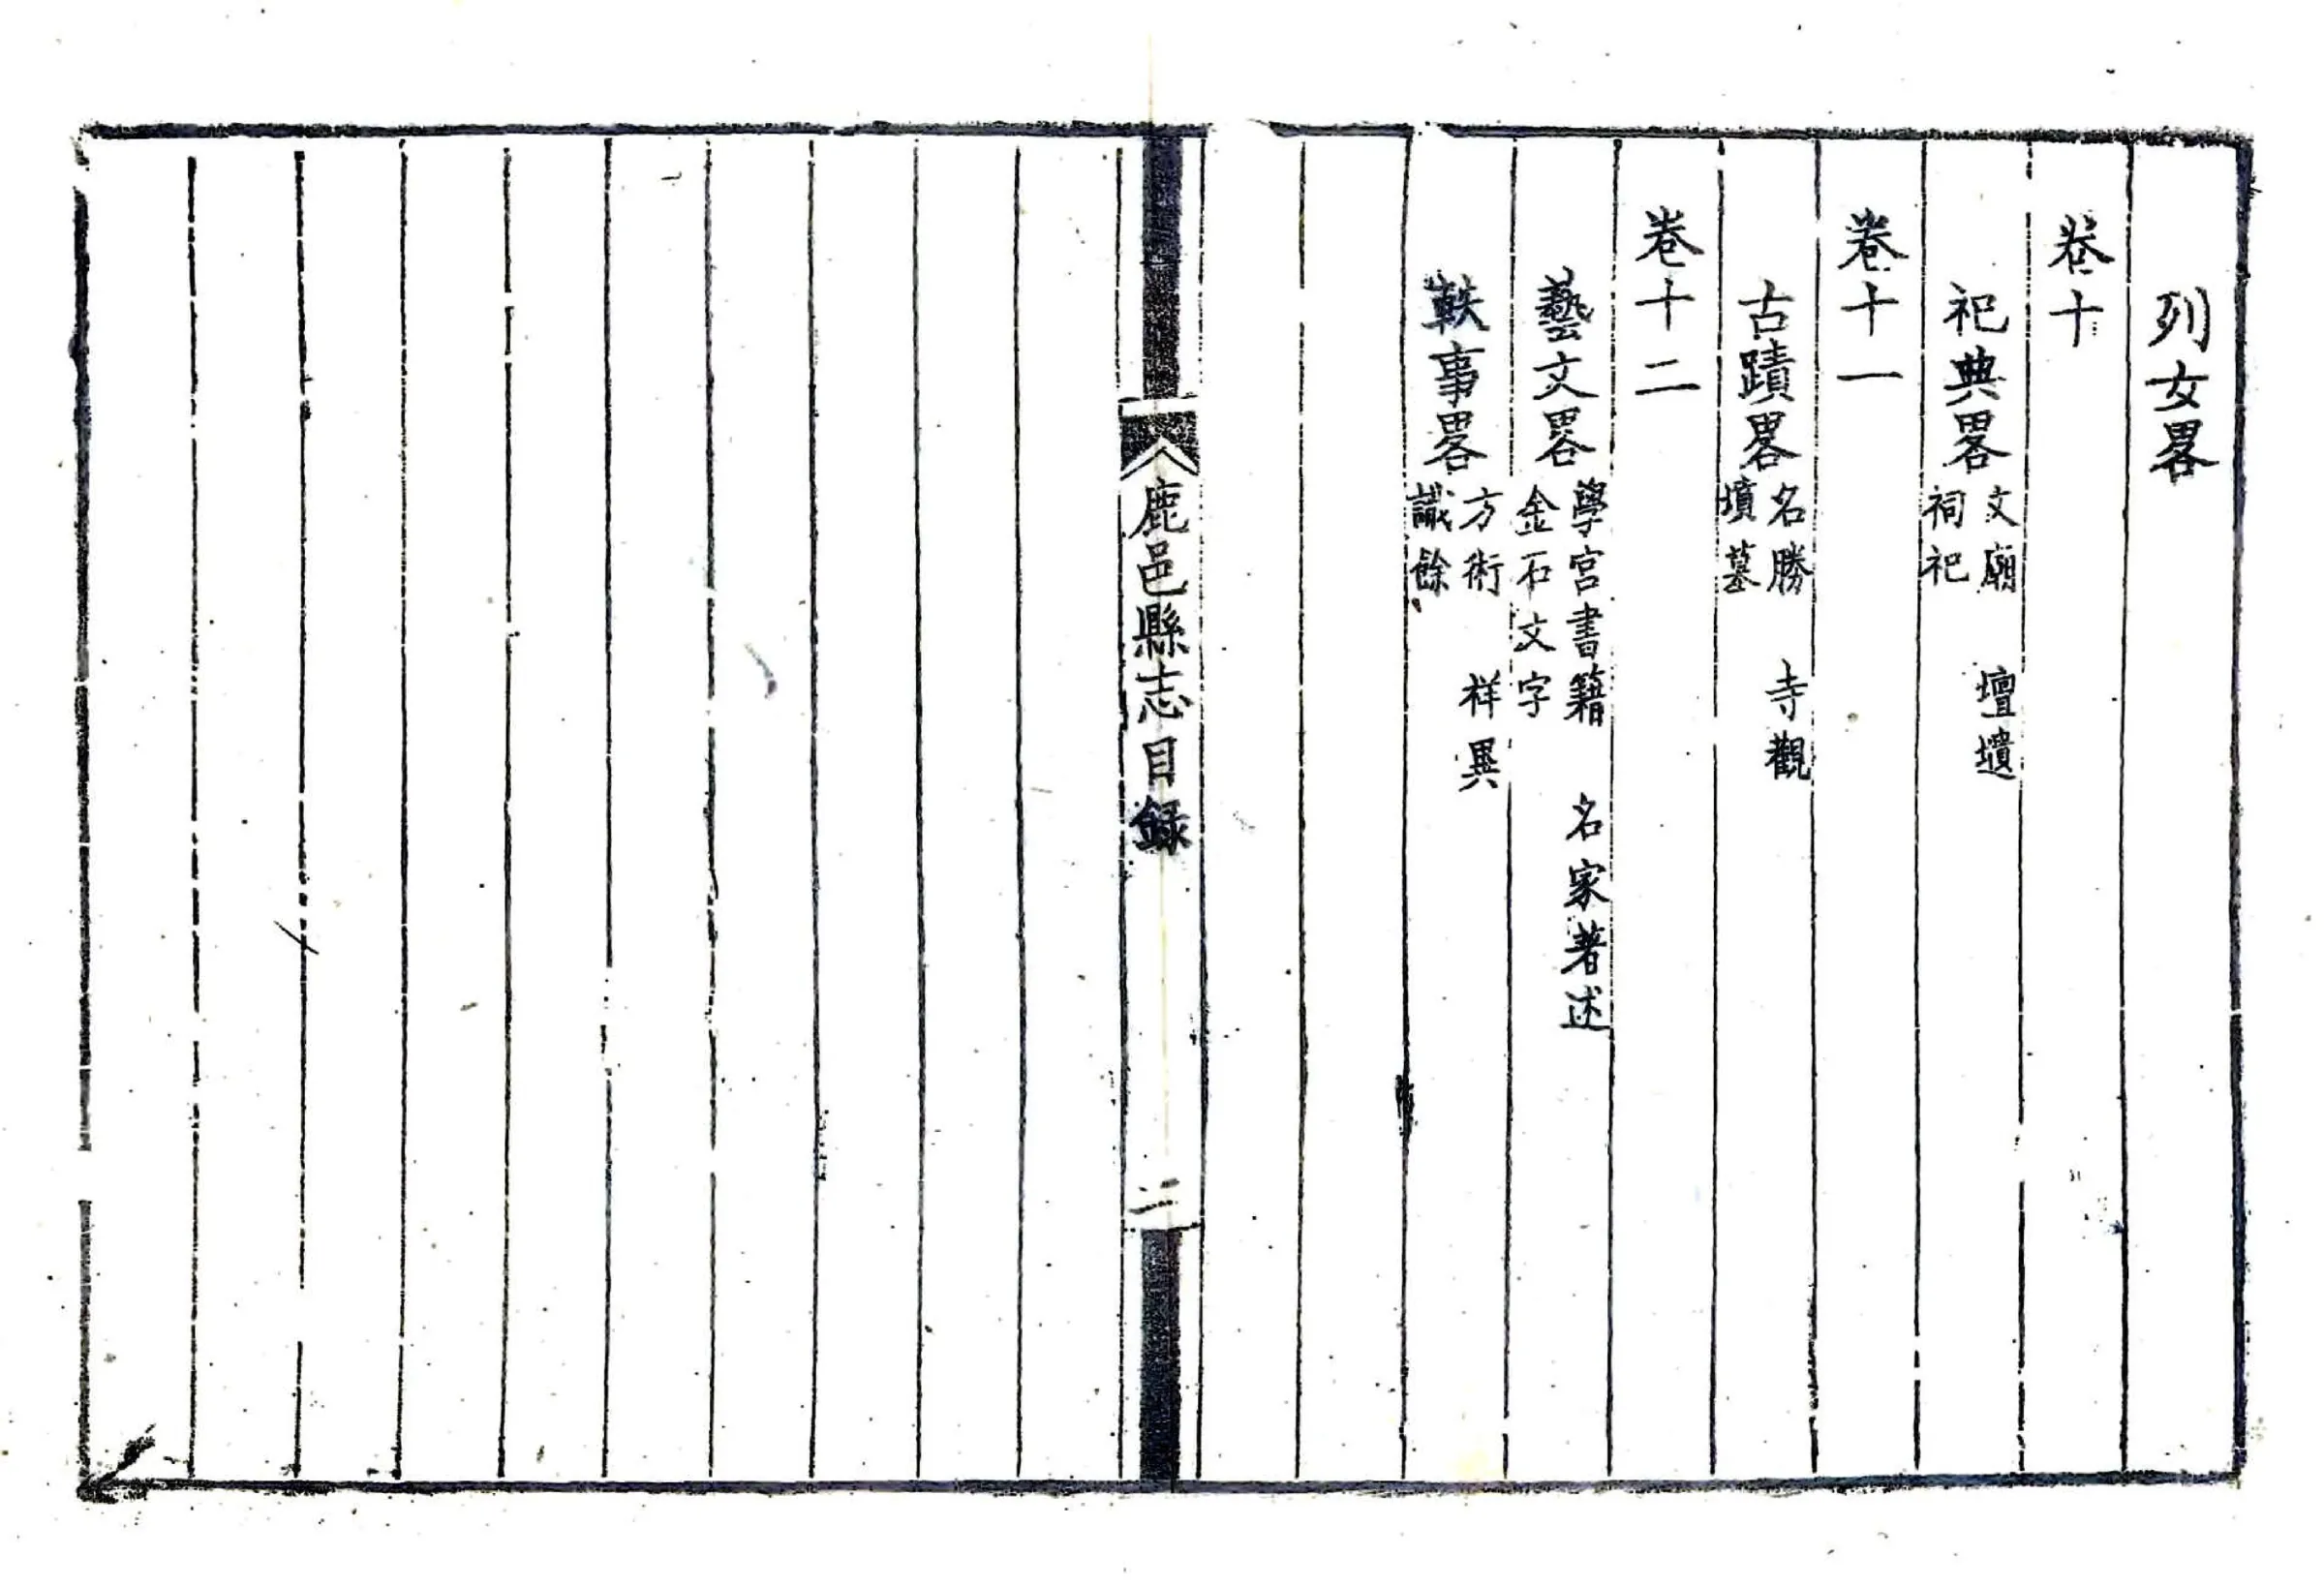 列女畧
卷十
祀典畧
文廟　壇壝
祠祀
卷十一
古蹟畧
名勝　寺觀
墳墓
卷十二
藝文畧
學宫書籍　名家著述
金石文字
軼事畧
方術　祥異
識餘
鹿邑縣志目録
二